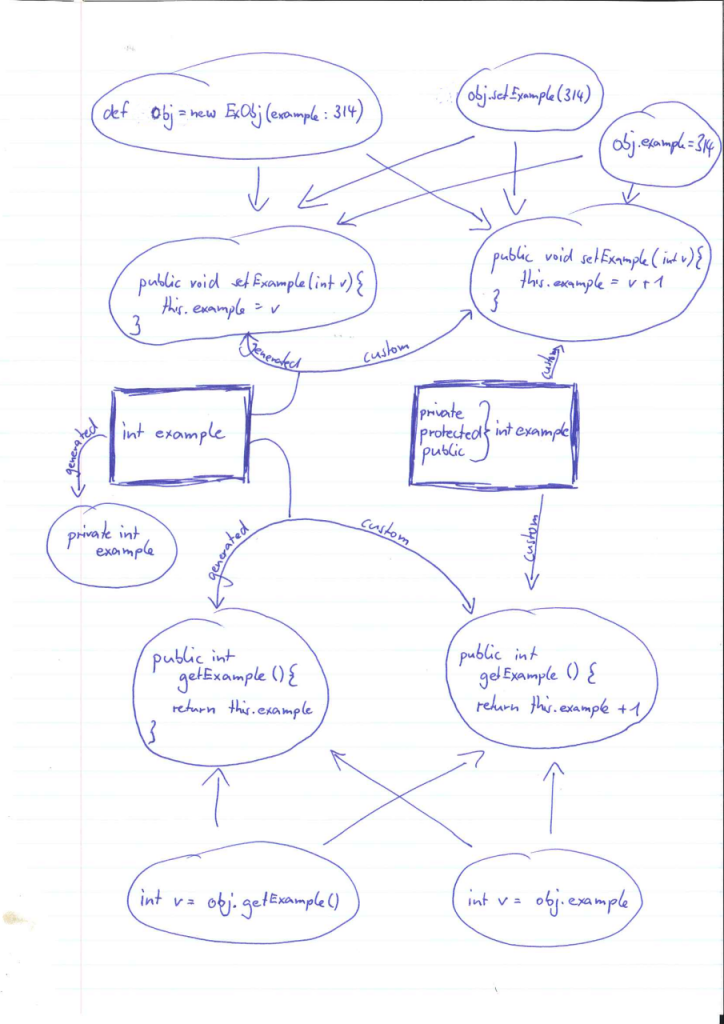 def obj = new ExObj(example: 314)
obj.setExample(314)
obj.example = 314
public void setExample(int v) {
this.example = v
}
public void setExample(int v) {
this.example = v + 1
}
generated
custom
custom
int example
private
protected
public
} int example
generated
private int
example
generated
custom
custom
public int
getExample () {
return this.example
}
public int
getExample () {
return this.example + 1
int v = obj.getExample()
int v = obj.example